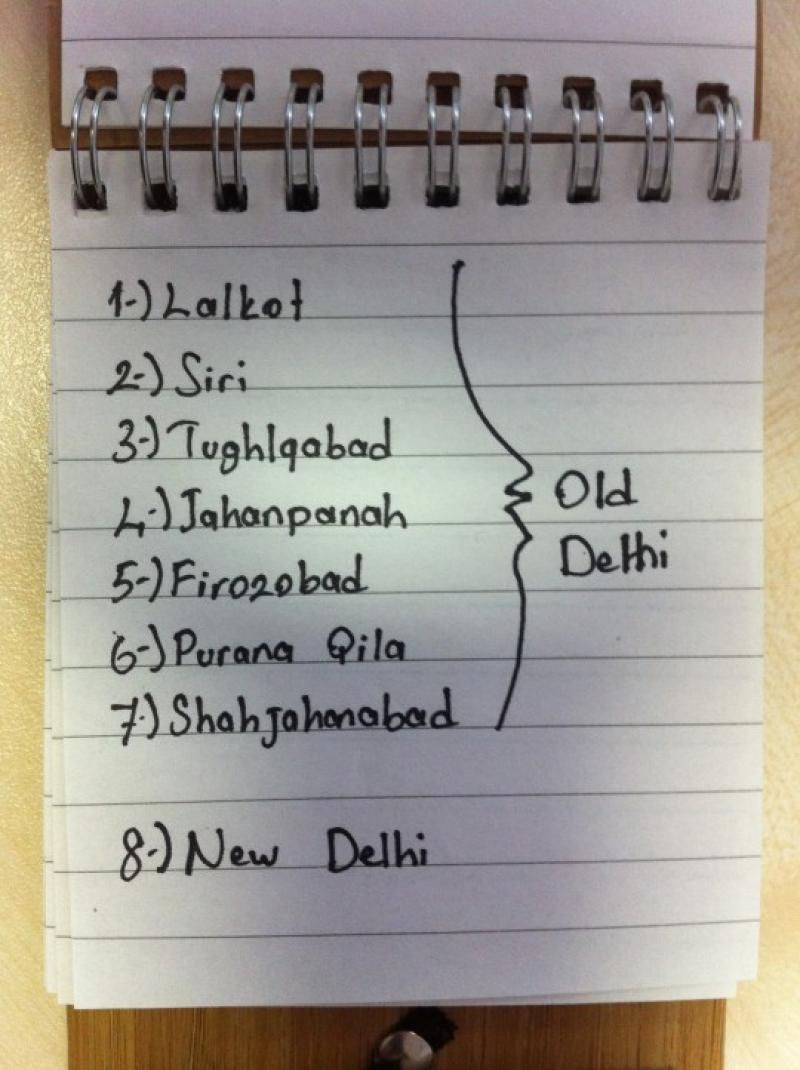 1-) Lalkot
2-) Siri
3-) Tughlqabad
4-) Jahanpanah
5-) Firozobad
6-) Purana Qila
7-) Shahjahanabad
Old
Delhi
8-) New Delhi